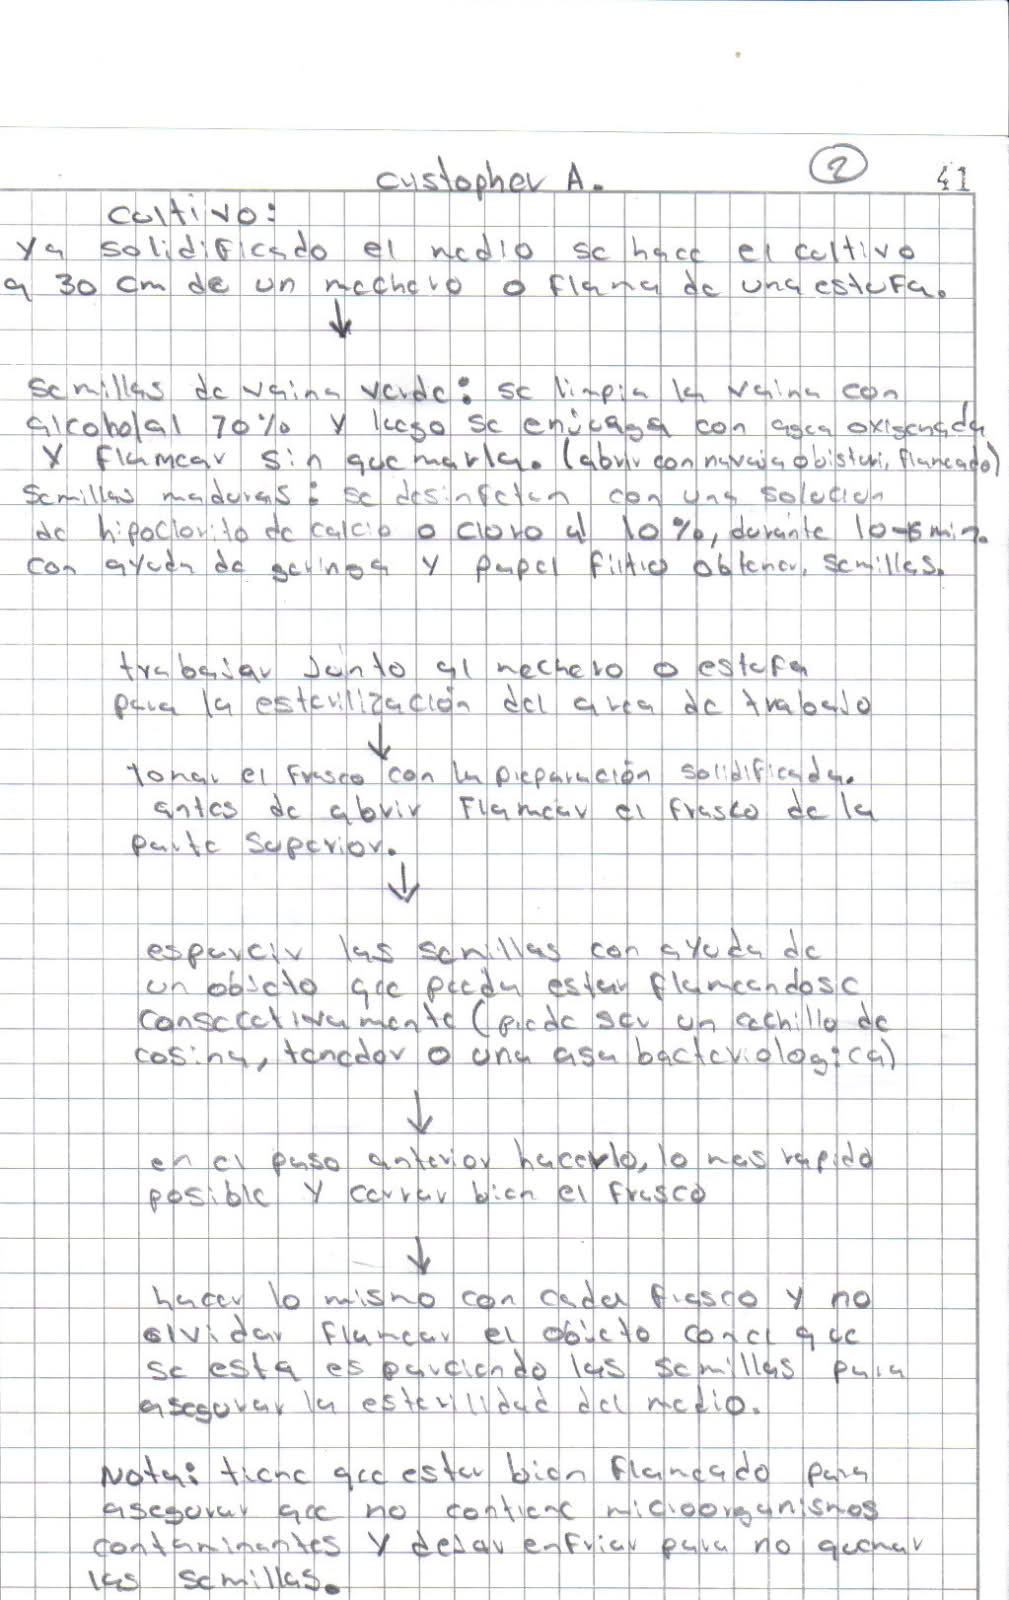 Cristopher A.
2
41
cultivo:
Ya solidificado el medio se hace el cultivo
a 30 cm de un mechero o flama de una estufa.
↓
semillas de vaina verde: se limpia la vaina con
alcohol al 70% y luego se enjuaga con agua oxigenada
y flamear sin quemarla. (abrir con navaja o bisturi, flameado)
semillas maduras: se desinfectan con una solucion
de hipoclorito de calcio o cloro al 10%, durante 10-15 min.
con ayuda de geringa y papel filtro obtener, semillas.
trabajar junto al mechero o estufa
para la esterilización del area de trabajo
↓
tomar el frasco con la preparación solidificada.
antes de abrir flamear el frasco de la
parte superior.
↓
esparcir las semillas con ayuda de
un objeto que pueda estar flameandose
consecutivamente (puede ser un cuchillo de
cosina, tenedor o una asa bacteriologica)
↓
en el paso anterior hacerlo, lo mas rapido
posible y cerrar bien el frasco
↓
hacer lo mismo con cada frasco y no
olvidar flamear el objeto con el que
se esta esparciendo las semillas para
asegurar la esterilidad del medio.
Nota: tiene que estar bien flameado para
asegurar que no contiene microorganismos
contaminantes y dejar enfriar para no quemar
las semillas.